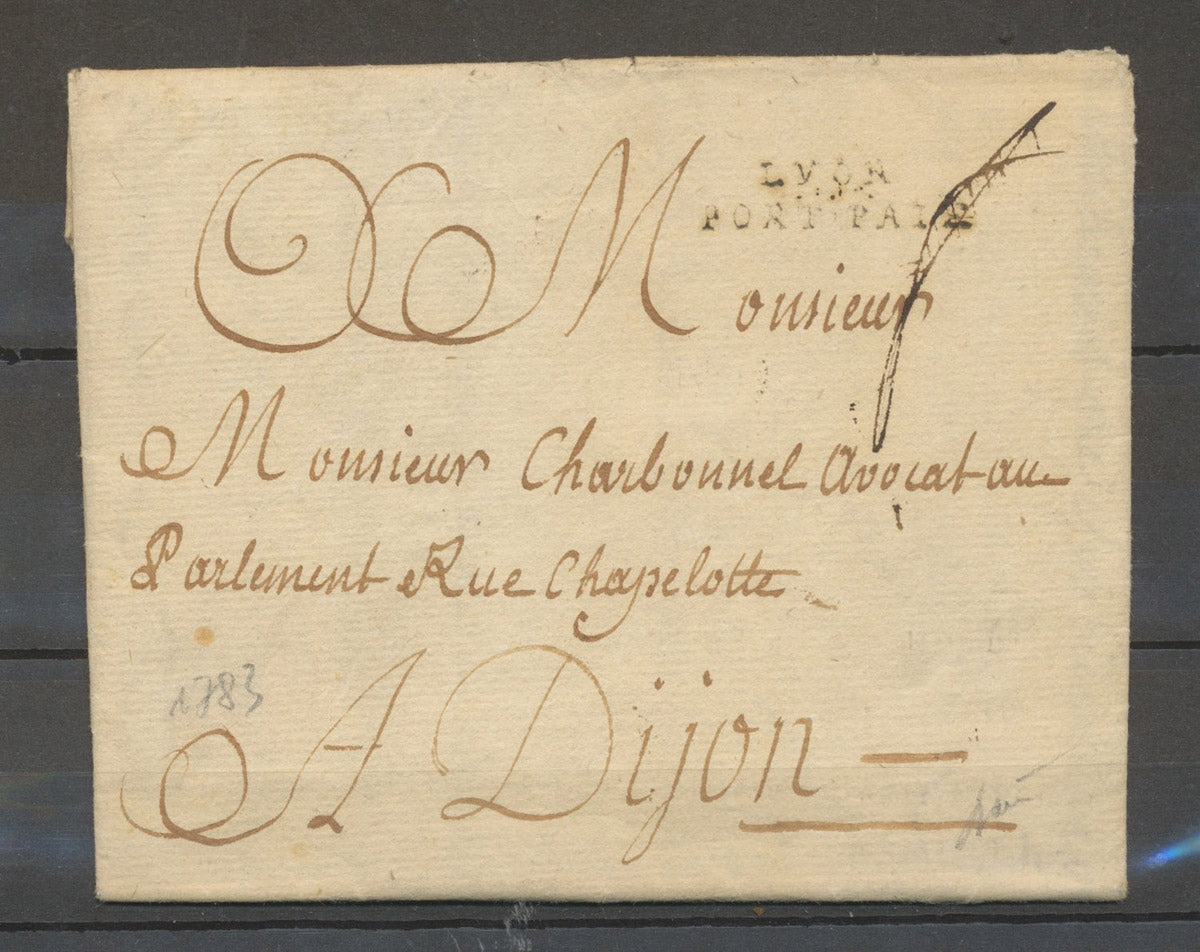 LYON
PORT PAYE
Monsieur
Monsieur Charbonnel Avocat au
Parlement Rue Chapelotte
1783
A Dijon —